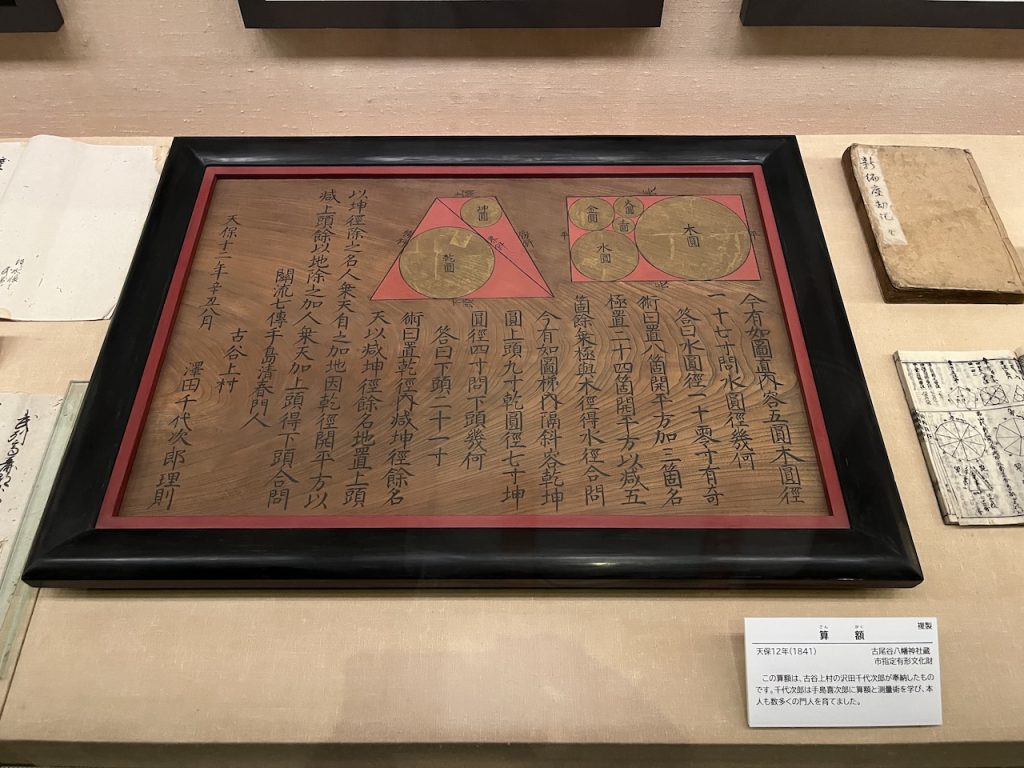 木圓
火圓
金圓
土圓
水圓
坤圓
乾圓
今有如圖直内容五圓木圓徑
一十七寸問水圓徑幾何
答曰水圓徑一十零寸有奇
術曰置八箇開平方加三箇名
極置二十四箇開平方以減五
箇除乗極與木徑得水徑合問
今有如圖梯内隔斜容乾坤
圓上頭九寸乾圓徑七寸坤
圓徑四寸問下頭幾何
答曰下頭二十一寸
術曰置乾徑内減坤徑餘名
天以減坤徑餘名地置上頭
以坤徑除之名人乗天自之加地因乾徑開平方以
減上頭餘以地除之加人乗天加上頭得下頭合問
關流七傳手島清春門人
天保十二年辛丑八月
古谷上村
澤田千代次郎理則
新編塵劫記
複製
さん がく
算 額
天保12年(1841) 古尾谷八幡神社蔵
市指定有形文化財
この算額は、古谷上村の沢田千代次郎が奉納したもの
です。千代次郎は手島喜次郎に算額と測量術を学び、本
人も数多くの門人を育てました。